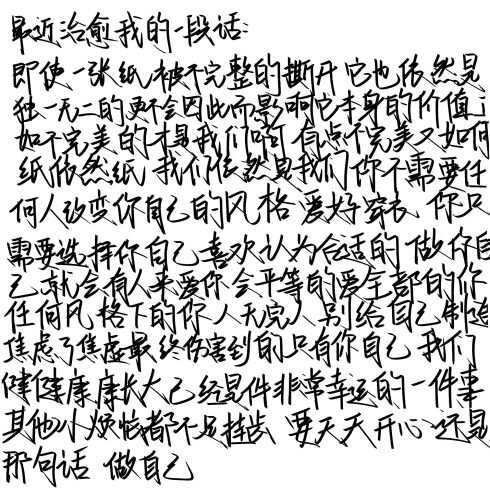 最近治愈我的一段话:
即使一张纸被不完整的撕开它也依然是
独一无二的更不会因此而影响它本身的价值
如不完美的才是我们啊有点不完美又如何
纸依然纸 我们依然是我们你不需要任
何人改变你自己的风格 爱好 穿衣 你只
需要选择你自己喜欢认为合适的 做你自
己 就会有人来爱你 会平等的爱全部的你
任何风格下的你 人无完人 别给自己制造
焦虑了焦虑最终伤害到的只有你自己 我们
健健康康长大已经是件非常幸运的一件事
其他小烦恼都不足挂齿 要天天开心 还是
那句话 做自己